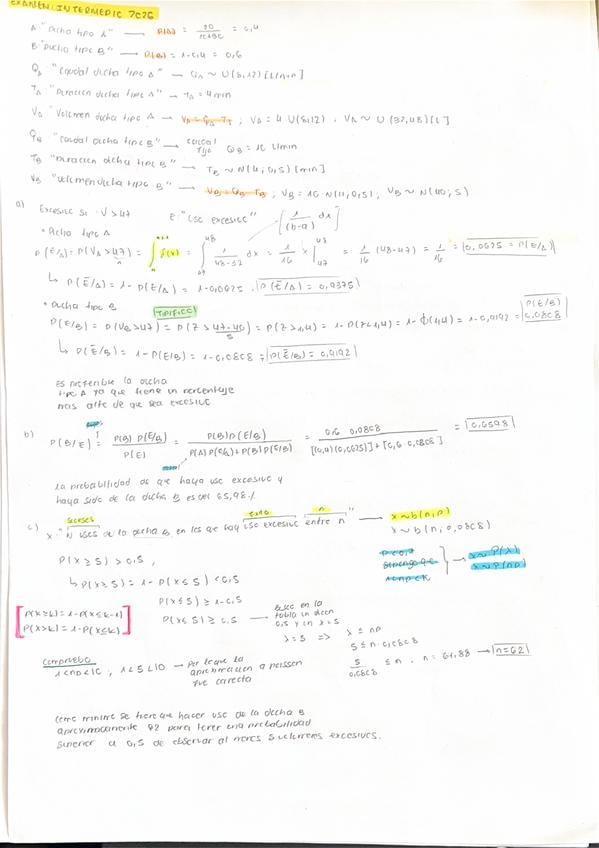 EXAMEN INTERMEDIO 2026
A: "Ducha tipo A" → P(A) = = 0,4
B: "Ducha tipo B" → P(B) = 1-0,4 = 0,6
Q_A: "Caudal ducha tipo A" → Q_A ~ U(8,12) [L/min]
T_A: "Duración ducha tipo A" → T_A = 4 min
V_A: "Volumen ducha tipo A → V_A = Q_A T_A ; V_A = 4 U(8,12) , V_A ~ U(32,48) [L]
Q_B: "Caudal ducha tipo B" → caudal fijo Q_B = 10 L/min
T_B: "Duración ducha tipo B" → T_B ~ N(4; 0,5) [min]
V_B: "Volumen ducha tipo B" → V_B = Q_B T_B ; V_B = 10 · , V_B ~ N(40; 5)
a) Excesivo si V > 47 E: "Uso excesivo" [1/(b-a) dx]
• Ducha tipo A
P(E/A) = P(V_A > 47) = ∫ f(x) = ∫_47^48 1/(48-32) dx = 1/16 x |_47^48 = 1/16 (48-47) = 1/16 = 0,0625 = P(E/A)
↳ P(Ē/A) = 1 - P(E/A) = 1 - 0,0625 = P(Ē/A) = 0,9375
• Ducha tipo B TIPIFICO
P(E/B) = P(V_B > 47) = P(Z > (47-40)/5) = P(Z > 1,4) = 1 - P(Z < 1,4) = 1 - Φ(1,4) = 1 - 0,9192 = P(E/B) 0,0808
↳ P(Ē/B) = 1 - P(E/B) = 1 - 0,0808 = P(Ē/B) = 0,9192
Es preferible la ducha
tipo A ya que tiene un porcentaje
mas alto de que sea excesivo
b) P(B/E) = P(B) P(E/B) / P(E) = P(B) P(E/B) / (P(A) P(E/A) + P(B) P(E/B)) = 0,6 · 0,0808 / ([(0,4)(0,0625)] + [0,6 · 0,0808]) = 0,6598
La probabilidad de que haya uso excesivo y
haya sido de la ducha B es del 65,98%
c) sucesos éxito n
X: "N usos de la ducha B en los que hay uso excesivo entre n" → X ~ b(n,p)
X ~ b(n; 0,0808)
P(X ≥ 5) > 0,5,
→ X ~ P(λ)
X ~ P(np)
↳ P(X ≥ 5) = 1 - P(X ≤ 5) < 0,5
P(X ≤ 5) ≥ 1-0,5
P(X ≤ 5) ≥ 0,5 → Busco en la tabla 0,5 y en λ = 5
[P(X ≥ k) = 1 - P(X ≤ k-1)
P(X > k) = 1 - P(X ≤ k)]
λ = 5 => λ ≤ np
5 ≤ n · 0,0808
5/0,0808 ≤ n , n = 61,88 → n = 62
Compruebo
1 < np < 10 , 1 < 5 < 10 → Por lo que la
aproximación a poisson
fue correcta
Como mínimo se tiene que hacer uso de la ducha B
aproximadamente 62 para tener una probabilidad
superior a 0,5 de observar al menos 5 volúmenes excesivos.